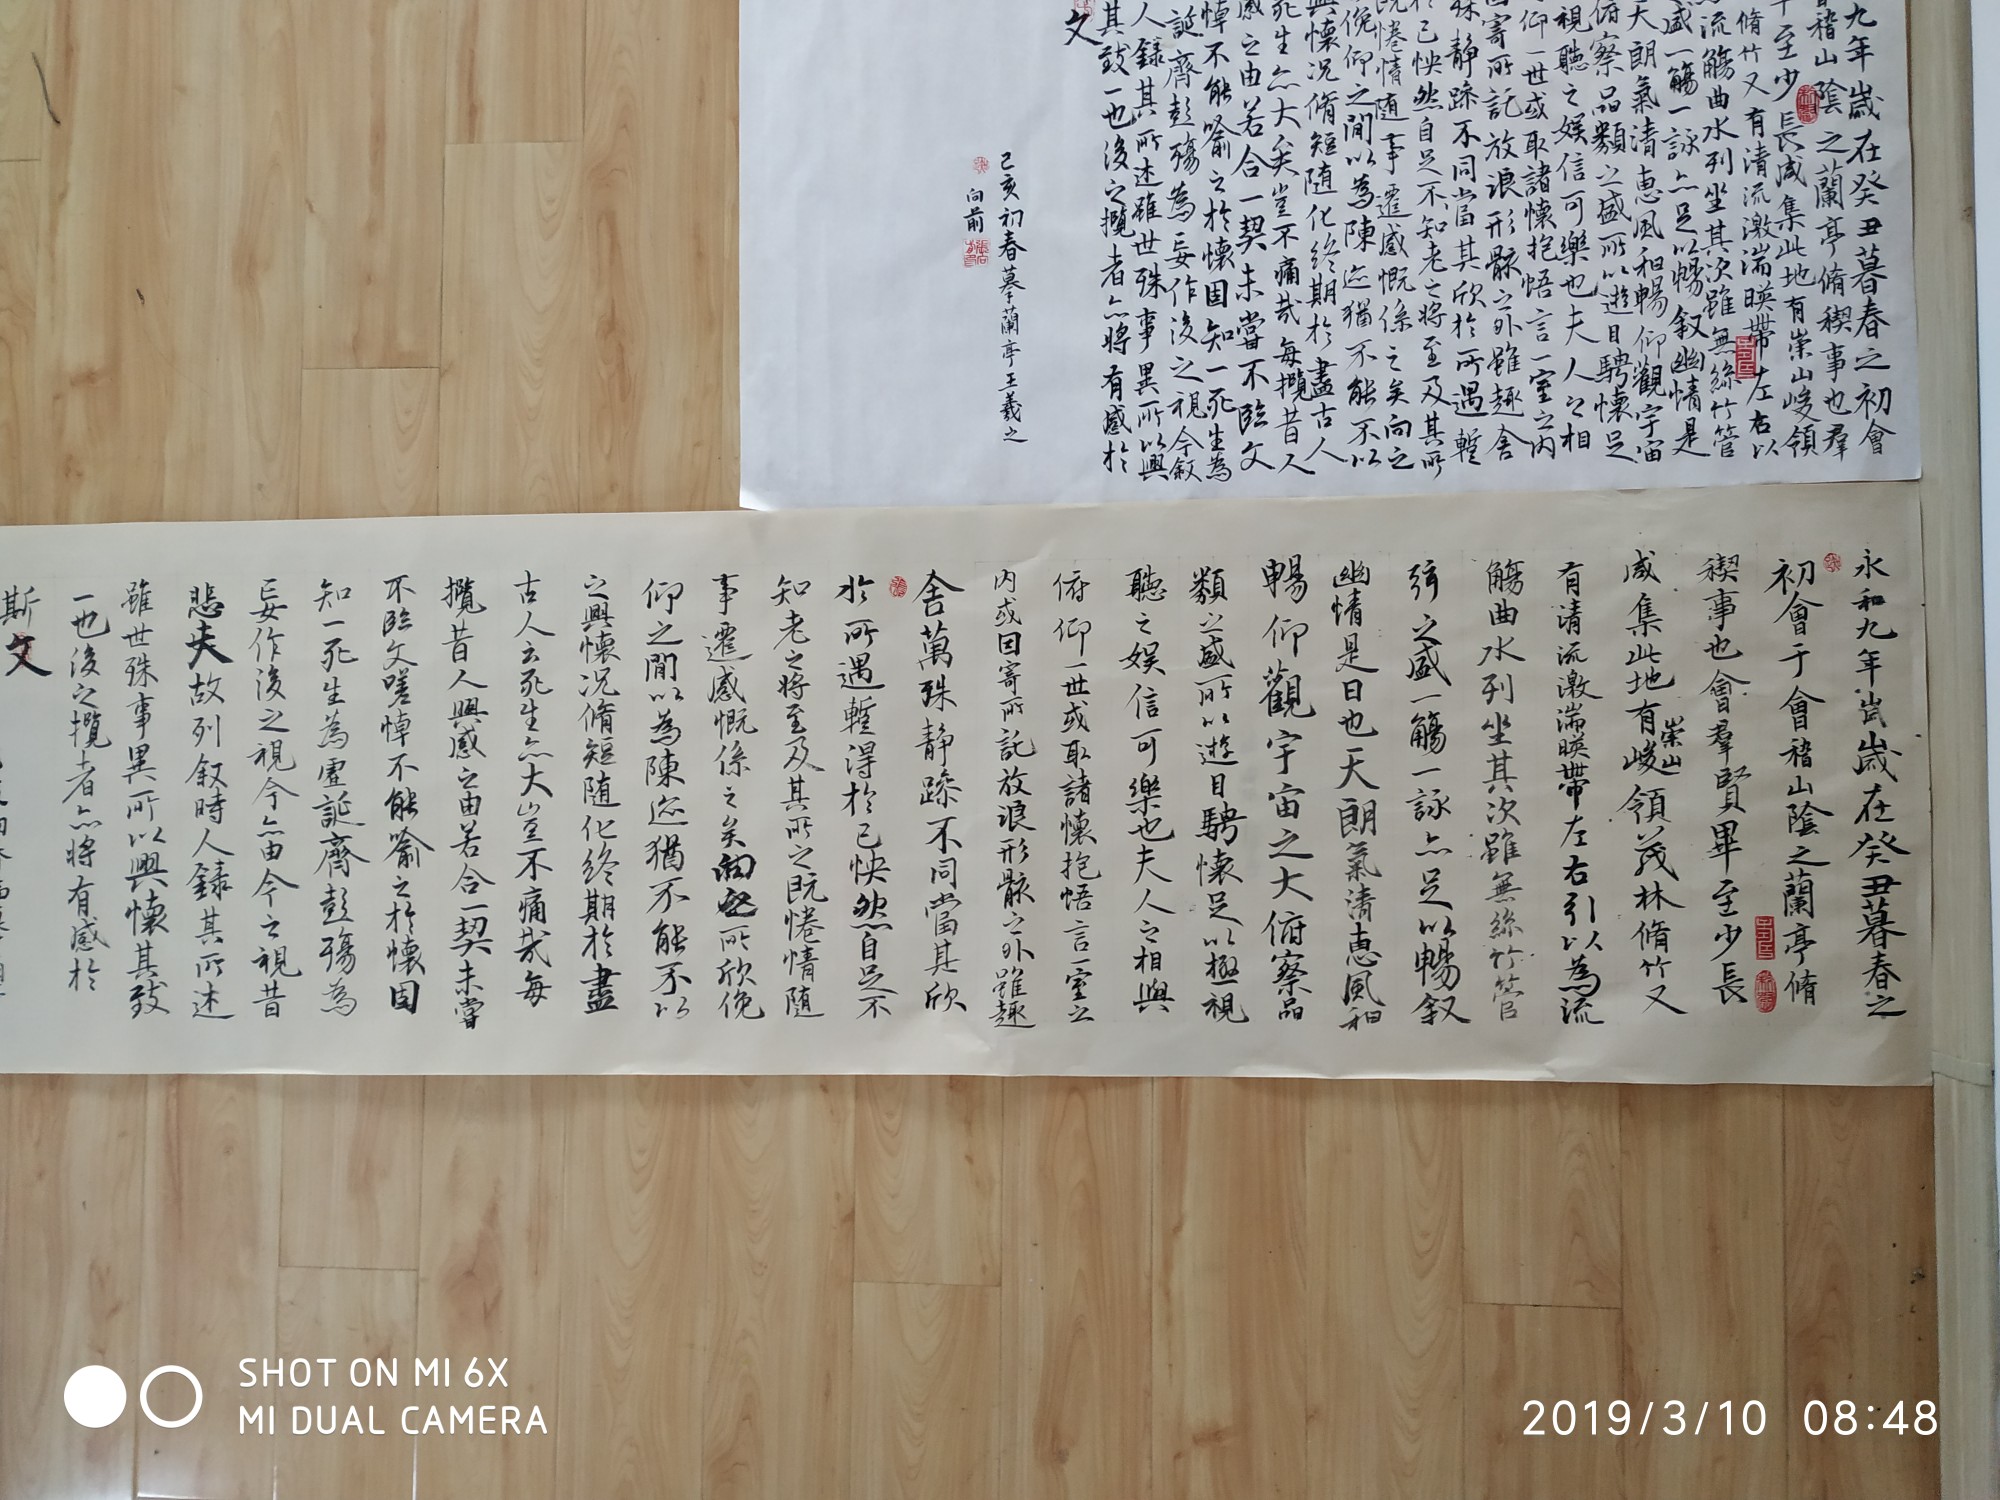 九年歲在癸丑暮春之初會
稽山陰之蘭亭脩稧事也羣
至少長咸集此地有崇山峻領
脩竹又有清流激湍暎帶左右以
流觴曲水列坐其次雖無絲竹管
盛一觴一詠亦足以暢叙幽情是
天朗氣清惠風和暢仰觀宇宙
俯察品類之盛所以遊目騁懷足
視聽之娱信可樂也夫人之相
仰一世或取諸懷抱悟言一室之内
因寄所託放浪形骸之外雖趣舍
殊静躁不同當其欣於所遇蹔
於己怏然自足不知老之將至及其所
既惓情随事遷感慨係之矣向之
俛仰之間以為陳迹猶不能不以
興懷况脩短随化終期於盡古人
死生亦大矣豈不痛哉每攬昔人
感之由若合一契未嘗不臨文
悼不能喻之於懷固知一死生為
誕齊彭殤為妄作後之視今叙
人錄其所述雖世殊事異所以興
其致一也後之攬者亦將有感於
文
己亥初春摹蘭亭王羲之
向前
永和九年歲歲在癸丑暮春之
初會于會稽山陰之蘭亭脩
稧事也會羣賢畢至少長
咸集此地有崇山峻領茂林脩竹又
有清流激湍暎帶左右引以為流
觴曲水列坐其次雖無絲竹管
弦之盛一觴一詠亦足以暢叙
幽情是日也天朗氣清惠風和
暢仰觀宇宙之大俯察品
類之盛所以遊目騁懷足以極視
聽之娱信可樂也夫人之相與
俯仰一世或取諸懷抱悟言一室之
内或因寄所託放浪形骸之外雖趣
舍萬殊静躁不同當其欣
於所遇蹔得於己怏然自足不
知老之將至及其所之既惓情随
事遷感慨係之矣向之所欣俛
仰之間以為陳迹猶不能不以
之興懷况脩短随化終期於盡
古人云死生亦大矣豈不痛哉每
攬昔人興感之由若合一契未嘗
不臨文嗟悼不能喻之於懷固
知一死生為虚誕齊彭殤為
妄作後之視今亦由今之視昔
悲夫故列叙時人錄其所述
雖世殊事異所以興懷其致
一也後之攬者亦將有感於
斯文
SHOT ON MI 6X
MI DUAL CAMERA
2019/3/10 08:48